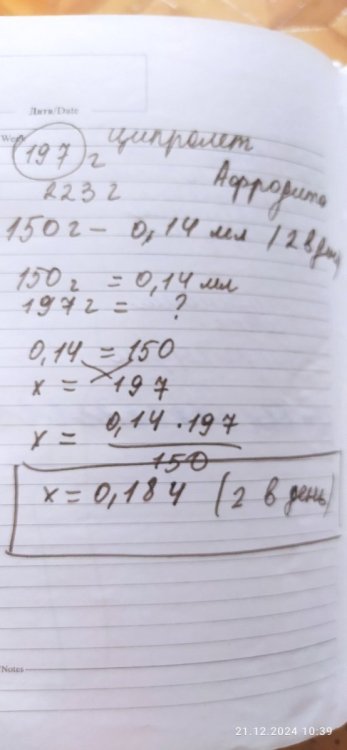 Дата/Date
Week
197 г Ципролет
223 г Афродита
150 г - 0,14 мл (2 в день
150 г = 0,14 мл
197 г = ?
0,14 = 150
х = 197
х = 0,14 · 197
150
х = 0,184 (2 в день)
/Notes
21.12.2024 10:39